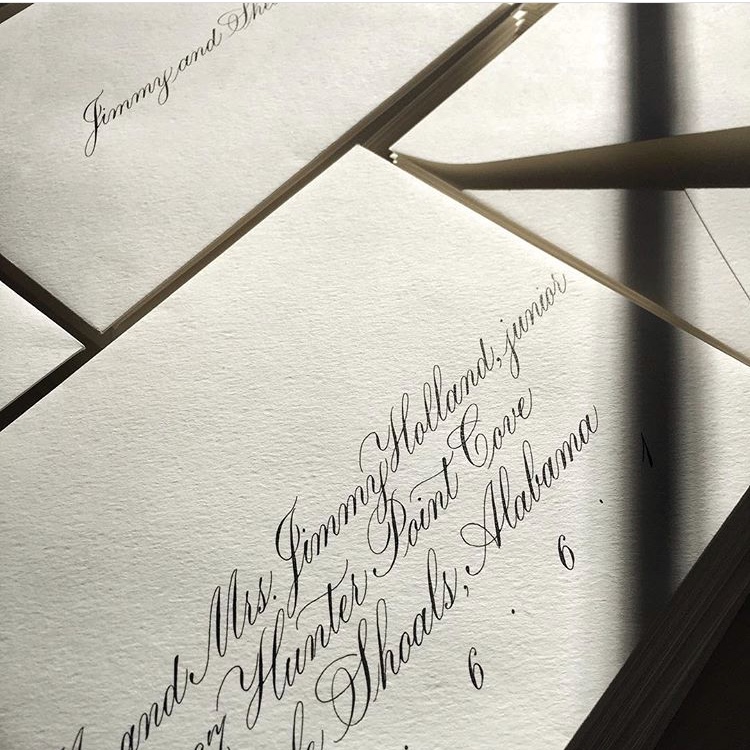 Jimmy and She
and Mrs. Jimmy Holland, junior
Hunter Point Cove
Shoals, Alabama
6 . 6 . 1